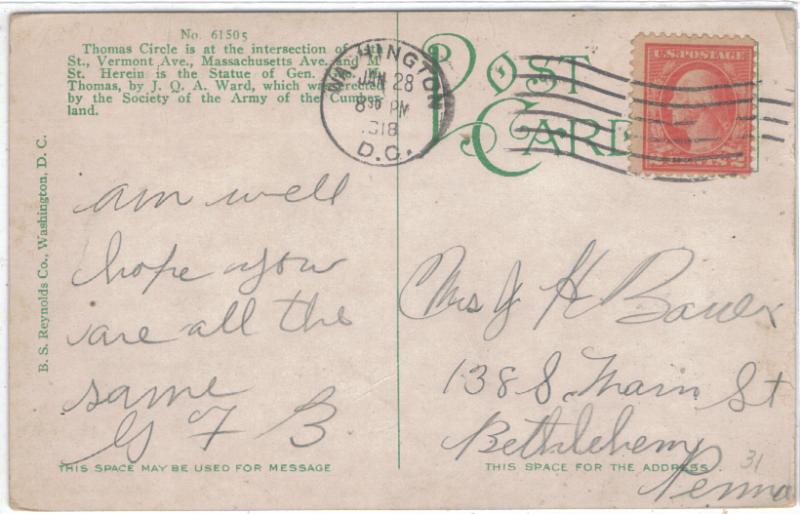 No. 61505
Thomas Circle is at the intersection of 14th
St., Vermont Ave., Massachusetts Ave. and M
St. Herein is the Statue of Gen. Geo. H.
Thomas, by J. Q. A. Ward, which was erected
by the Society of the Army of the Cumber-
land.
B. S. Reynolds Co., Washington, D. C.
WASHINGTON
JAN 28
8 30 PM
1918
D.C.
POST
CARD
U.S. POSTAGE
2 CENTS 2
am well
hope you
are all the
same
G F B
THIS SPACE MAY BE USED FOR MESSAGE
Mrs J H Bauer
138 S. Main St
Bethlehem
Penna
31
THIS SPACE FOR THE ADDRESS.